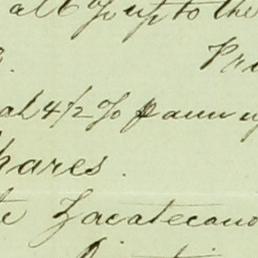 at 6% up to the
Pri
at 4½% p annu
hares.
te Zacatecano